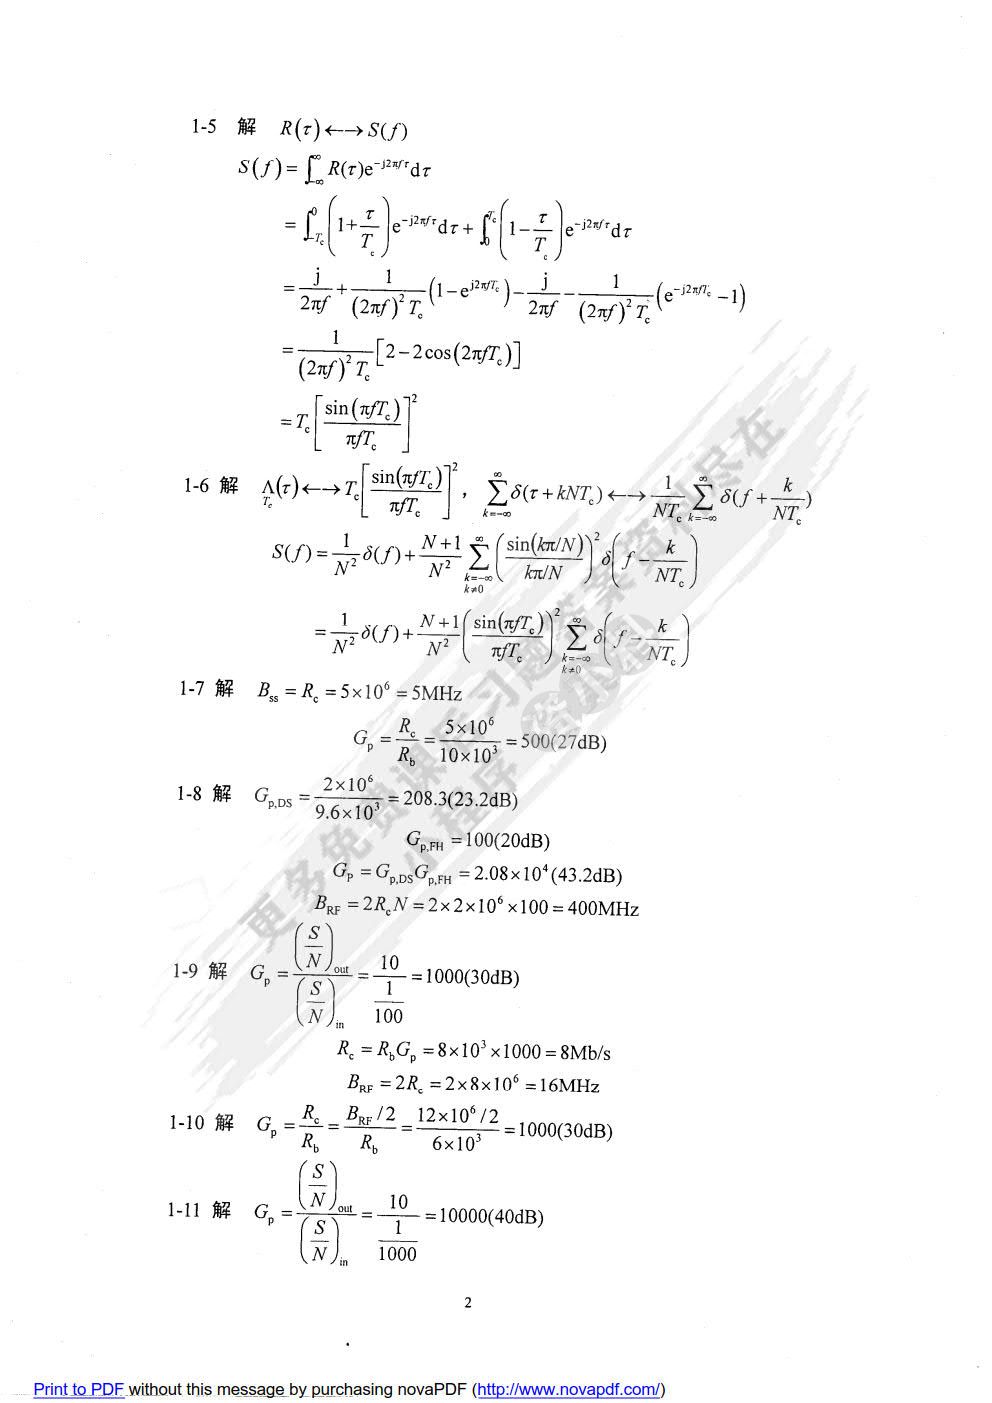 1-5 解 R(τ)←→S(f)
S(f)=∫_{-∞}^{∞}R(τ)e^{-j2πfτ}dτ
=∫_{-T_c}^{0}(1+τ/T_c)e^{-j2πfτ}dτ+∫_{0}^{T_c}(1-τ/T_c)e^{-j2πfτ}dτ
=j/(2πf)+1/((2πf)^2T_c)(1-e^{j2πfT_c})-j/(2πf)-1/((2πf)^2T_c)(e^{-j2πfT_c}-1)
=1/((2πf)^2T_c)[2-2cos(2πfT_c)]
=T_c[sin(πfT_c)/(πfT_c)]^2
1-6 解 Λ_{T_c}(τ)←→T_c[sin(πfT_c)/(πfT_c)]^2，∑_{k=-∞}^{∞}δ(τ+kNT_c)←→1/(NT_c)∑_{k=-∞}^{∞}δ(f+k/(NT_c))
S(f)=1/N^2 δ(f)+(N+1)/N^2 ∑_{k=-∞,k≠0}^{∞}(sin(kπ/N)/(kπ/N))^2δ(f-k/(NT_c))
=1/N^2 δ(f)+(N+1)/N^2(sin(πfT_c)/(πfT_c))^2∑_{k=-∞,k≠0}^{∞}δ(f-k/(NT_c))
1-7 解 B_ss=R_c=5×10^6=5MHz
G_p=R_c/R_b=(5×10^6)/(10×10^3)=500(27dB)
1-8 解 G_{p,DS}=(2×10^6)/(9.6×10^3)=208.3(23.2dB)
G_{p,FH}=100(20dB)
G_P=G_{p,DS}G_{p,FH}=2.08×10^4(43.2dB)
B_RF=2R_cN=2×2×10^6×100=400MHz
1-9 解 G_p=(S/N)_out/(S/N)_in=10/(1/100)=1000(30dB)
R_c=R_bG_p=8×10^3×1000=8Mb/s
B_RF=2R_c=2×8×10^6=16MHz
1-10 解 G_p=R_c/R_b=(B_RF/2)/R_b=(12×10^6/2)/(6×10^3)=1000(30dB)
1-11 解 G_p=(S/N)_out/(S/N)_in=10/(1/1000)=10000(40dB)
更多免费课后习题答案资料尽在
小程序
2
Print to PDF without this message by purchasing novaPDF (http://www.novapdf.com/)